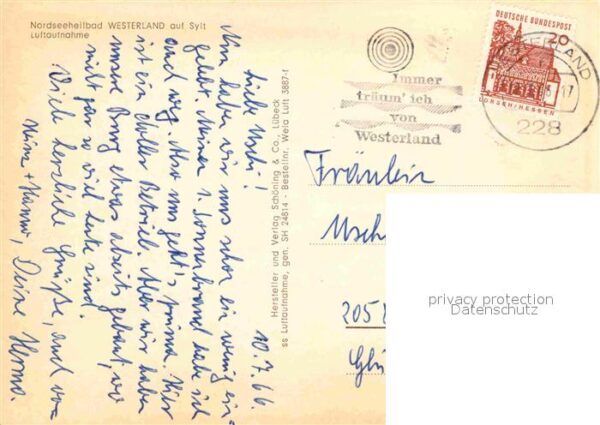 Nordseeheilbad WESTERLAND auf Sylt
Luftaufnahme
10.7.66.
Liebe Uschi!
Nun haben wir uns schon ein wenig ein-
gelebt. Meinen 1. Sonnenbrand habe ich
auch weg. Aber uns geht's prima. Hier
ist ein toller Betrieb. Aber wir haben
unsere Burg etwas abseits gebaut, wo
nicht gar so viel Leute sind.
Viele herzliche Grüße, auch von
Deine
Hersteller und Verlag Schöning & Co., Lübeck
ss Luftaufnahme, gen. SH 24814 - Bestellnr. Wela Luft 3887-f
Immer
träum' ich
von
Westerland
DEUTSCHE BUNDESPOST
20
LORSCH/HESSEN
WESTERLAND
228
Fräulein
Usch
205
privacy protection
Datenschutz